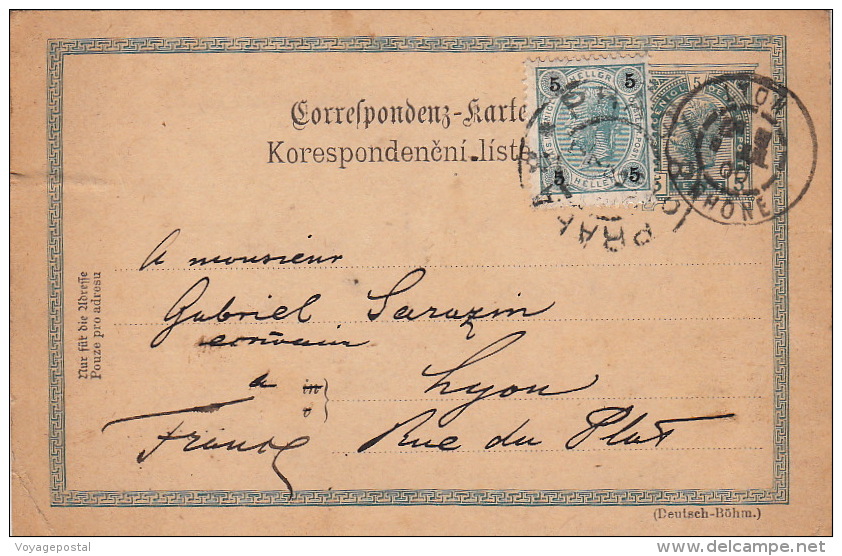 Correspondenz-Karte
Korespondenční líste
5 5
5 5
HELLER
5
PRAHA
LYON
RHONE
A monsieur
Gabriel Sarazin
écrivain
a in Lyon
v
France Rue du Plat
Nur für die Adresse
Pouze pro adresu
(Deutsch-Böhm.)
Voyagepostal
delcampe.net